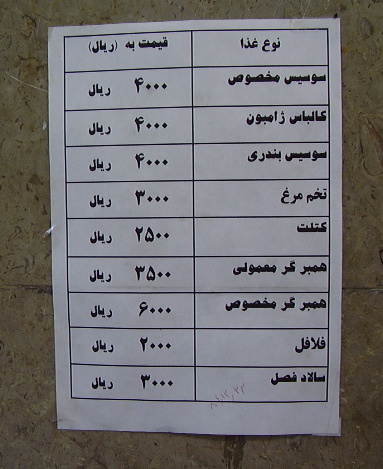 نوع غذا قیمت به (ریال)
سوسیس مخصوص ۴۰۰۰ ریال
کالباس ژامبون ۴۰۰۰ ریال
سوسیس بندری ۴۰۰۰ ریال
تخم مرغ ۳۰۰۰ ریال
کتلت ۲۵۰۰ ریال
همبر گر معمولی ۳۵۰۰ ریال
همبر گر مخصوص ۶۰۰۰ ریال
فلافل ۲۰۰۰ ریال
سالاد فصل ۳۰۰۰ ریال